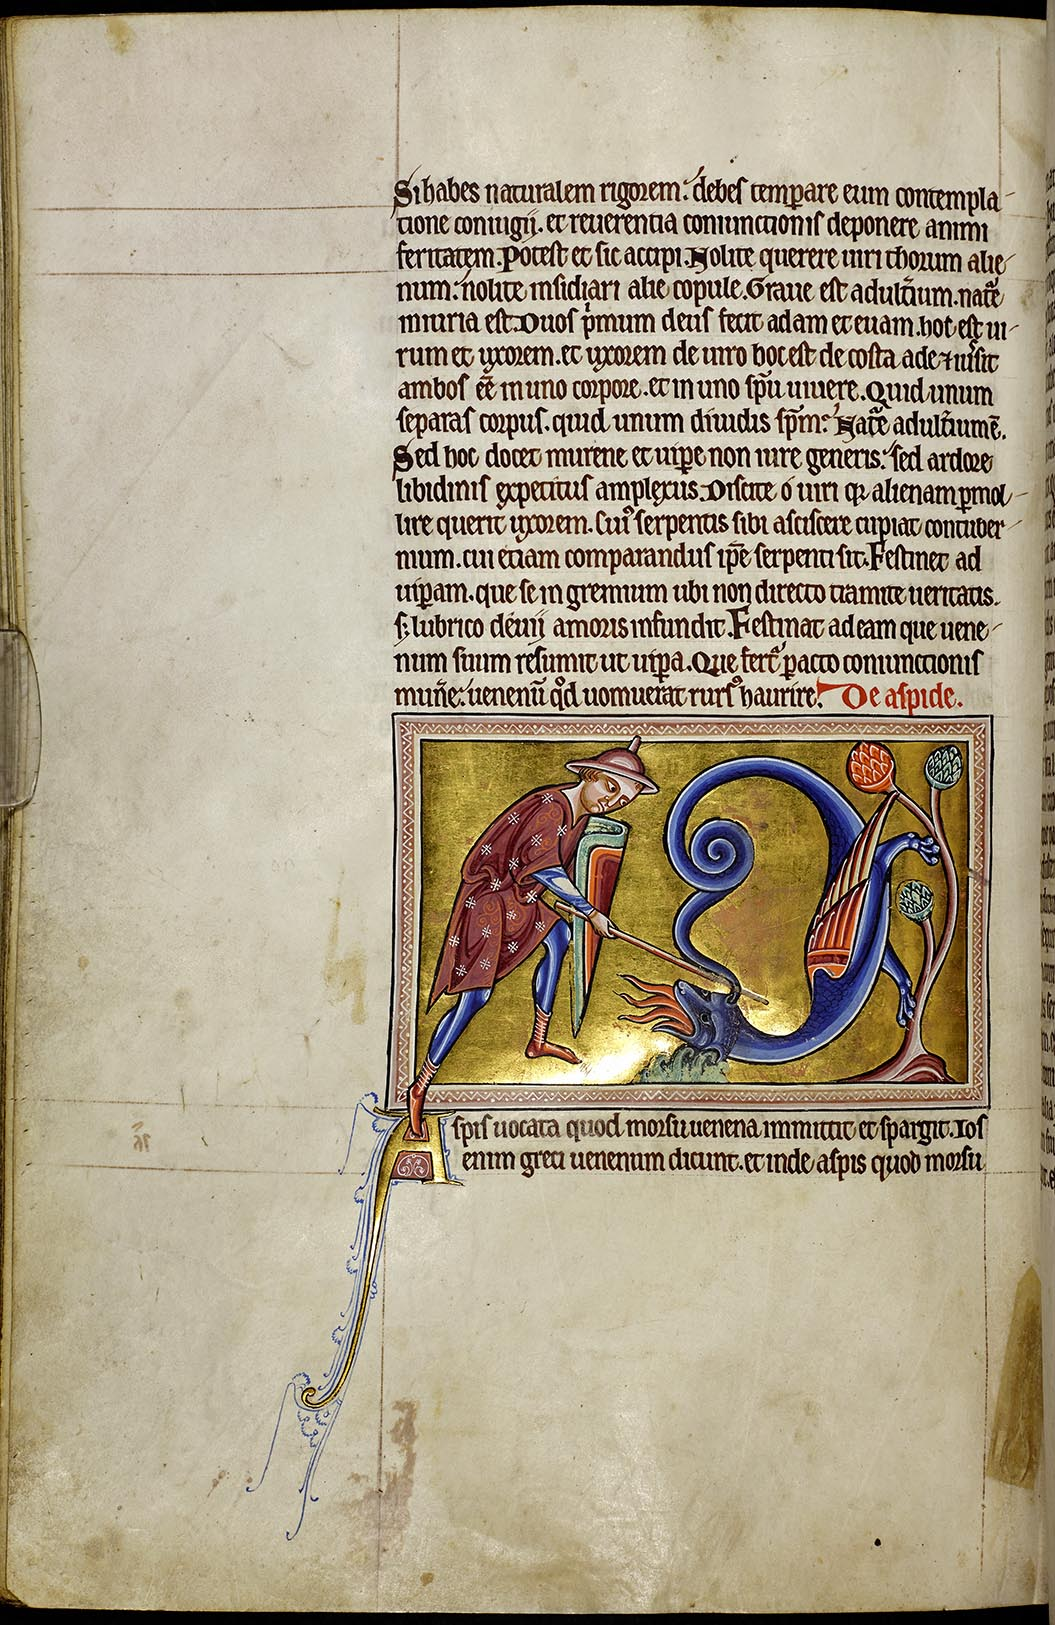 Si habes naturalem rigorem: debes temꝑare eum contempla-
tione coniugij. et reuerentia coniunctionis deponere animi
feritatem. Potest et sic accipi. Nolite querere uiri thorum alie-
num: nolite insidiari alie copule. Graue est adult̾ium. nat᷒e
iniuria est. Duos p̾mum deus fecit adam et euam. hoc est ui-
rum et uxorem. et uxorem de uiro hoc est de costa ade ⁊ iussit
ambos ee̅ in uno corpore. et in uno sp̅u uiuere. Quid unum
separas corpus. quid unum diuidis sp̅m: Nat᷒e adult̾ium e̅.
Sed hoc docet murene et uiꝑe non iure generis: sed ardore
libidinis expetitus amplexus. Discite o uiri qꝛ alienam ꝑmol-
lire querit uxorem. cui᷒ serpentis sibi asciscere cupiat contuber-
nium. cui etiam comparandus ip̅e serpenti sit. Festinet ad
uiꝑam. que se in gremium ubi non directo tramite ueritatis.
s; lubrico deuij amoris infundit. Festinat ad eam que uene-
num suum resumit ut uiꝑa. Que fert᷑ ꝑacto coniunctionis
mun̾e: uenenu̅ qͦd uomuerat rurs᷒ haurire. De aspide.
Aspis uocata quod morsu uenena immittit et spargit. Ios
enim greci uenenum dicunt. et inde aspis quod morsu